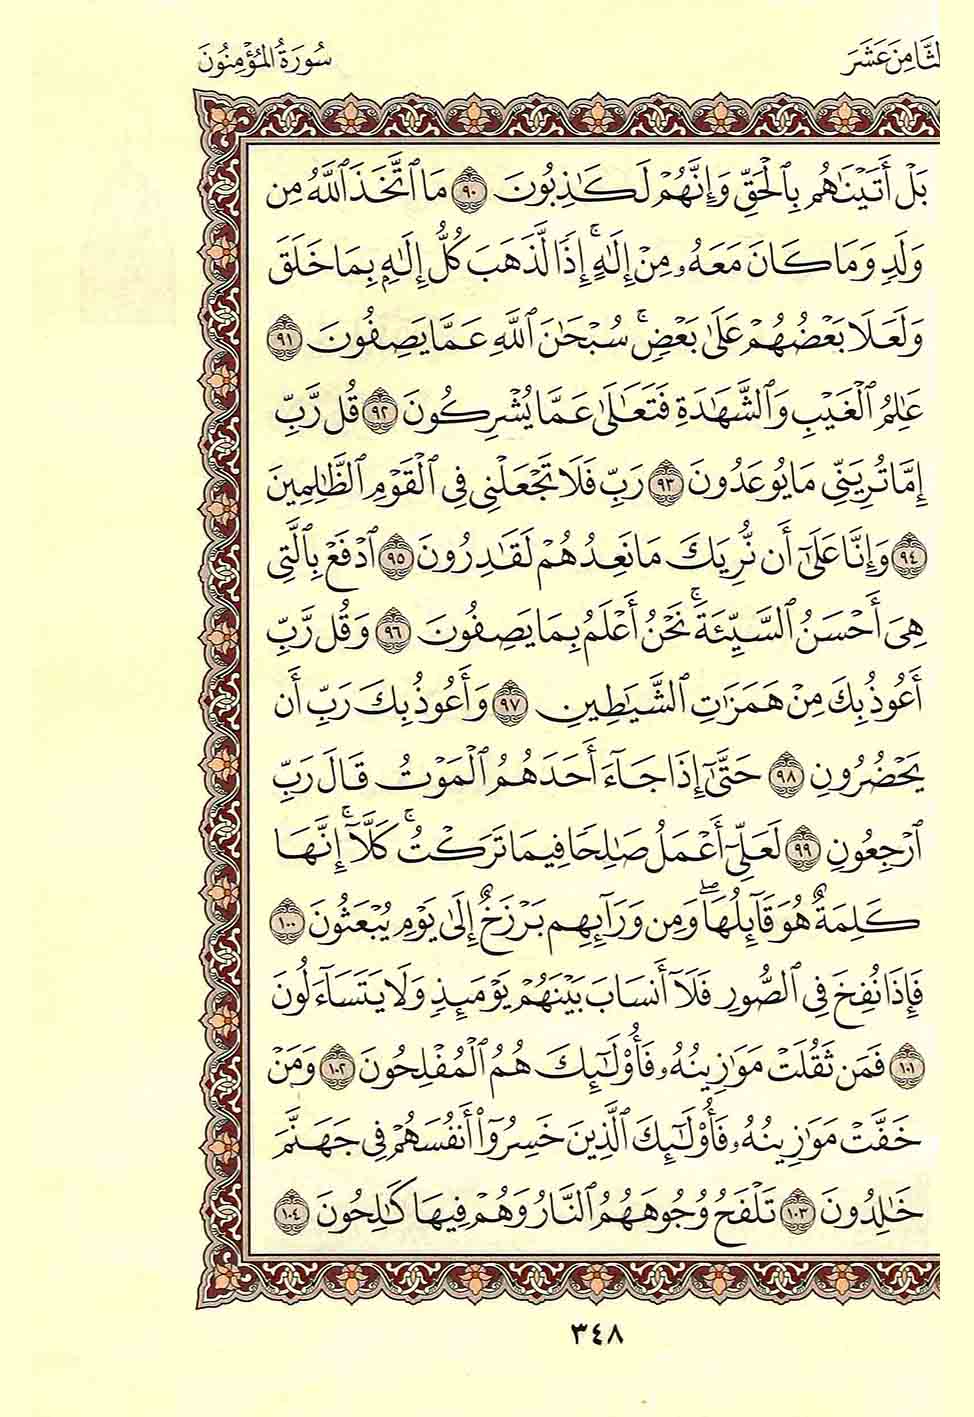 الثَّامِنَ عَشَرَ
سُورَةُ المُؤْمِنُونَ
بَلْ أَتَيْنَٰهُم بِٱلْحَقِّ وَإِنَّهُمْ لَكَٰذِبُونَ ٩٠ مَا ٱتَّخَذَ ٱللَّهُ مِن
وَلَدٍ وَمَا كَانَ مَعَهُۥ مِنْ إِلَٰهٍ ۚ إِذًا لَّذَهَبَ كُلُّ إِلَٰهٍۭ بِمَا خَلَقَ
وَلَعَلَا بَعْضُهُمْ عَلَىٰ بَعْضٍ ۚ سُبْحَٰنَ ٱللَّهِ عَمَّا يَصِفُونَ ٩١
عَٰلِمِ ٱلْغَيْبِ وَٱلشَّهَٰدَةِ فَتَعَٰلَىٰ عَمَّا يُشْرِكُونَ ٩٢ قُل رَّبِّ
إِمَّا تُرِيَنِّى مَا يُوعَدُونَ ٩٣ رَبِّ فَلَا تَجْعَلْنِى فِى ٱلْقَوْمِ ٱلظَّٰلِمِينَ
٩٤ وَإِنَّا عَلَىٰٓ أَن نُّرِيَكَ مَا نَعِدُهُمْ لَقَٰدِرُونَ ٩٥ ٱدْفَعْ بِٱلَّتِى
هِىَ أَحْسَنُ ٱلسَّيِّئَةَ ۚ نَحْنُ أَعْلَمُ بِمَا يَصِفُونَ ٩٦ وَقُل رَّبِّ
أَعُوذُ بِكَ مِنْ هَمَزَٰتِ ٱلشَّيَٰطِينِ ٩٧ وَأَعُوذُ بِكَ رَبِّ أَن
يَحْضُرُونِ ٩٨ حَتَّىٰٓ إِذَا جَآءَ أَحَدَهُمُ ٱلْمَوْتُ قَالَ رَبِّ
ٱرْجِعُونِ ٩٩ لَعَلِّىٓ أَعْمَلُ صَٰلِحًا فِيمَا تَرَكْتُ ۚ كَلَّآ ۚ إِنَّهَا
كَلِمَةٌ هُوَ قَآئِلُهَا ۖ وَمِن وَرَآئِهِم بَرْزَخٌ إِلَىٰ يَوْمِ يُبْعَثُونَ ١٠٠
فَإِذَا نُفِخَ فِى ٱلصُّورِ فَلَآ أَنسَابَ بَيْنَهُمْ يَوْمَئِذٍ وَلَا يَتَسَآءَلُونَ
١٠١ فَمَن ثَقُلَتْ مَوَٰزِينُهُۥ فَأُو۟لَٰٓئِكَ هُمُ ٱلْمُفْلِحُونَ ١٠٢ وَمَنْ
خَفَّتْ مَوَٰزِينُهُۥ فَأُو۟لَٰٓئِكَ ٱلَّذِينَ خَسِرُوٓا۟ أَنفُسَهُمْ فِى جَهَنَّمَ
خَٰلِدُونَ ١٠٣ تَلْفَحُ وُجُوهَهُمُ ٱلنَّارُ وَهُمْ فِيهَا كَٰلِحُونَ ١٠٤
٣٤٨